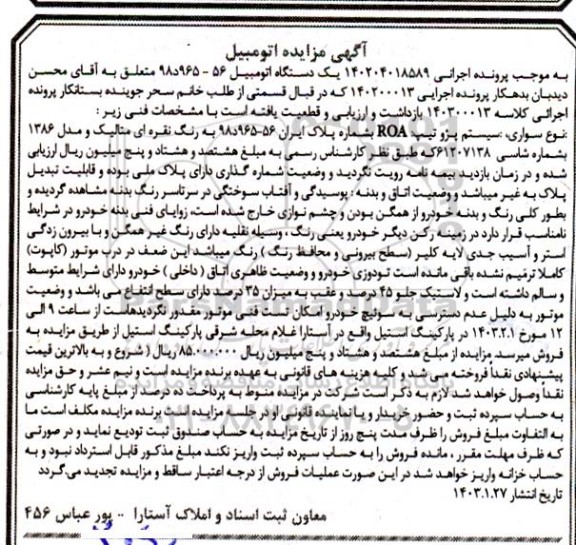 آگهی مزایده اتومبیل
به موجب پرونده اجرائی ۱۴۰۲۰۴۰۱۸۵۸۹ یک دستگاه اتومبیل ۵۶ - ۹۶۵د۹۸ متعلق به آقای محسن
دیدبان بدهکار پرونده اجرایی ۱۴۰۲۰۰۰۱۳ که در قبال قسمتی از طلب خانم سحر جوینده بستانکار پرونده
اجرائی کلاسه ۱۴۰۳۰۰۰۱۳ بازداشت و ارزیابی و قطعیت یافته است با مشخصات فنی زیر :
نوع سواری، سیستم پژو تیپ ROA بشماره پلاک ایران ۵۶-۹۶۵د۹۸ به رنگ نقره ای متالیک و مدل ۱۳۸۶
بشماره شاسی ۶۱۲۰۷۱۳۸ که طبق نظر کارشناس رسمی به مبلغ هشتصد و هشتاد و پنج میلیون ریال ارزیابی
شده و در زمان بازدید بیمه نامه رویت نگردید و وضعیت شماره گذاری دارای پلاک ملی بوده و قابلیت تبدیل
پلاک به غیر میباشد و وضعیت اتاق و بدنه : پوسیدگی و آفتاب سوختگی در سرتاسر رنگ بدنه مشاهده گردیده و
بطور کلی رنگ و بدنه خودرو از همگن بودن و چشم نوازی خارج شده است، زوایای فنی بدنه خودرو در شرایط
نامناسب قرار دارد در زمینه رکن دیگر خودرو یعنی رنگ ، وسیله نقلیه دارای رنگ غیر همگن و با بیرون زدگی
استر و آسیب جدی لایه کلیر (سطح بیرونی و محافظ رنگ ) رنگ میباشد این ضعف در درب موتور (کاپوت)
کاملا ترمیم نشده باقی مانده است تودوزی خودرو و وضعیت ظاهری اتاق ( داخلی ) خودرو دارای شرایط متوسط
و سالم داشته است و لاستیک جلو ۴۵ درصد و عقب به میزان ۳۵ درصد دارای سطح انتفاع می باشد و وضعیت
موتور به دلیل عدم دسترسی به سوئیچ خودرو امکان تست فنی موتور مقدور نگردیده است از ساعت ۹ الی
۱۲ مورخ ۱۴۰۳.۲.۱ در پارکینگ استیل واقع در آستارا غلام محله شرقی پارکینگ استیل از طریق مزایده به
فروش میرسد مزایده از مبلغ هشتصد و هشتاد و پنج میلیون ریال ۸۵.۰۰۰.۰۰۰ ریال ( شروع و به بالاترین قیمت
پیشنهادی نقداً فروخته می شد و کلیه هزینه های قانونی به عهده برنده مزایده است و نیم عشر و حق مزایده
نقداً وصول خواهد شد لازم به ذکر است شرکت در مزایده منوط به پرداخت ده درصد از مبلغ پایه کارشناسی
به حساب سپرده ثبت و حضور خریدار و یا نماینده قانونی او در جلسه مزایده است برنده مزایده مکلف است ما
به التفاوت مبلغ فروش را ظرف مدت پنج روز از تاریخ مزایده به حساب صندوق ثبت تودیع نماید و در صورتی
که ظرف مهلت مقرر ، مانده فروش را به حساب سپرده ثبت واریز نکند مبلغ مذکور قابل استرداد نبود و به
حساب خزانه واریز خواهد شد در این صورت عملیات فروش از درجه اعتبار ساقط و مزایده تجدید می.گردد
تاریخ انتشار ۱۴۰۳.۱.۲۷
معاون ثبت اسناد و املاک آستارا - پور عباس ۴۵۶